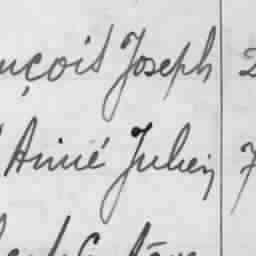 nçois Joseph 2
Aimé Julien 7